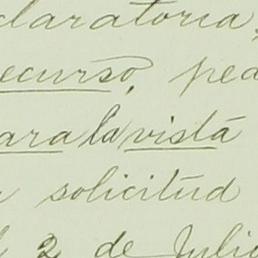 claratoria,
ecurso, ped
ara la vista
solicitud
2 de Julio